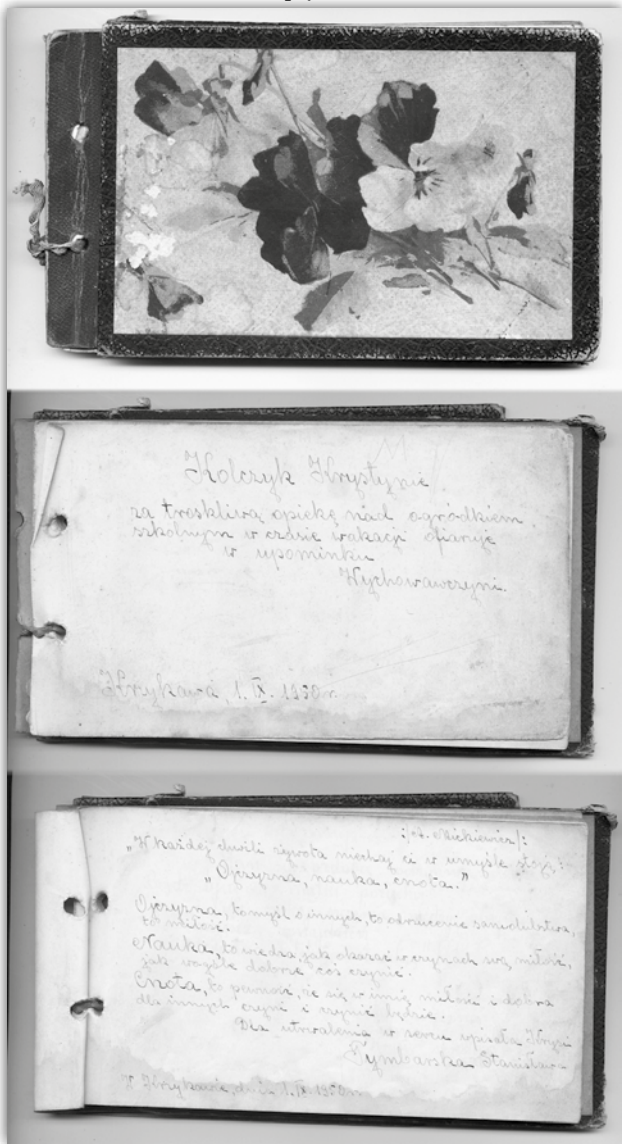 Kolczyk Krystynie
za troskliwą opiekę nad ogródkiem
szkolnym w czasie wakacji ofiaruje
w upominku
Wychowawczyni.
1. IX. 1950 r.
/:A. Mickiewicz/:
„W każdej chwili żywota niechaj ci w umyśle stoją:
„Ojczyzna, nauka, cnota."
Ojczyzna, to myśl o innych, to odrzucenie samolubstwa,
to miłość.
Nauka, to wiedza, jak okazać w czynach swą miłość,
jak wogóle dobrze coś czynić.
Cnota, to pewność, że się w imię miłości i dobra
dla innych czyni i czynić będzie.
Dla utrwalenia w sercu wpisała Krysi
Tymbarska Stanisława
dnia 1. IX. 1950 r.